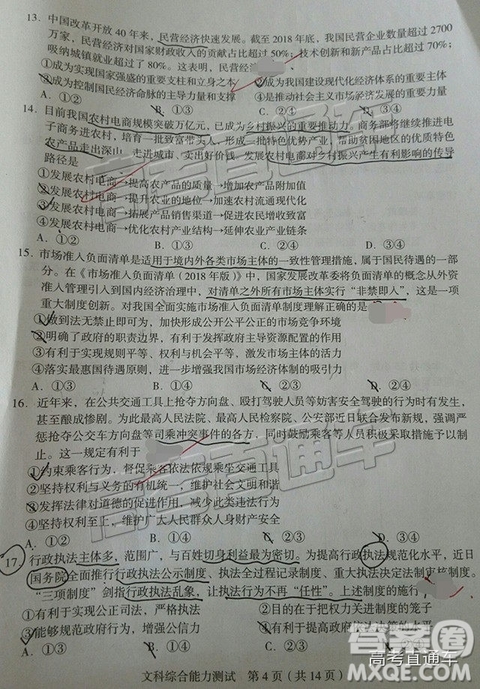 13. 中国改革开放40年来，民营经济快速发展。截至2018年底，我国民营企业数量超过2700
万家，民营经济对国家财政收入的贡献占比超过50%；技术创新和新产品占比超过70%；
吸纳城镇就业超过了80%。这表明，民营经济
①成为实现国家强盛的重要支柱和立身之本 ②成为我国建设现代化经济体系的重要主体
③成为控制国民经济命脉的主导力量和支撑 ④是推动社会主义市场经济发展的重要力量
A．①② B．①③ C．②④ D．③④
14. 目前我国农村电商规模突破万亿元，已成为乡村振兴的重要推动力。商务部将继续推进电
子商务进农村，培育一批致富带头人，形成一批特色优势产业，帮助贫困地区的优质特色
农产品走出深山、走进城市、卖出好价钱。发展农村电商对乡村振兴产生有利影响的传导
路径是
①发展农村电商→提高农产品的质量→增加农产品附加值
②发展农村电商→提升农业产业化→带动农业全产业链
③发展农村电商→拓展产品销售渠道→促进农民增收致富
④发展农村电商→优化农村产业结构→延伸农业产业链条
A．①② B．①③ C．②④ D．③④
15. 市场准入负面清单是适用于境内外各类市场主体的一致性管理措施，属于国民待遇的一部
分。在《市场准入负面清单（2018年版）》中，国家发展改革委将负面清单的概念从外资
准入管理引入到国内经济治理中，对清单之外所有市场主体实行“非禁即入”，这是一项
重大制度创新。对我国全面实施市场准入负面清单制度理解正确的是
①做到法无禁止即可为，加快形成公开公平公正的市场竞争环境
②明确了政府的职责边界，有利于发挥政府主导资源配置的作用
③有利于实现规则平等、权利与机会平等，激发市场主体的活力
④落实最惠国待遇原则，进一步增强我国经济体制的吸引力
A．①② B．①③ C．②④ D．③④
16. 近年来，在公共交通工具上抢夺方向盘、殴打驾驶人员等妨害安全驾驶的行为时有发生，
甚至酿成惨剧。为此最高人民法院、最高人民检察院、公安部近日联合发布新规，强调严
惩抢夺公交车方向盘等司乘冲突事件的各方，同时鼓励乘客等人员积极采取措施予以制
止。这一规定有利于
①约束乘客行为，督促乘客依法依规乘坐交通工具
②坚持权利与义务的有机统一，维护社会文明和谐
③发挥法律对道德的促进作用，减少此类违法行为
④坚持权利至上，维护广大人民群众人身财产安全
A．①② B．①③ C．②④ D．③④
17. 行政执法主体多，范围广，与百姓切身利益最为密切。为提高行政执法规范化水平，近日
国务院全面推行行政执法公示制度、执法全过程记录制度、重大执法决定法制审核制度。
“三项制度”剑指行政执法乱象，让执法行为不再“任性”。上述的施行
①有利于实现公正司法，严格执法 ②目的在于把权力关进制度的笼子
③能够规范政府行为，增强公信力
A．①② B．①③
文科综合能力测试 第4页（共14页）
高考直通车
高考直通车
答案圈
高考直通车